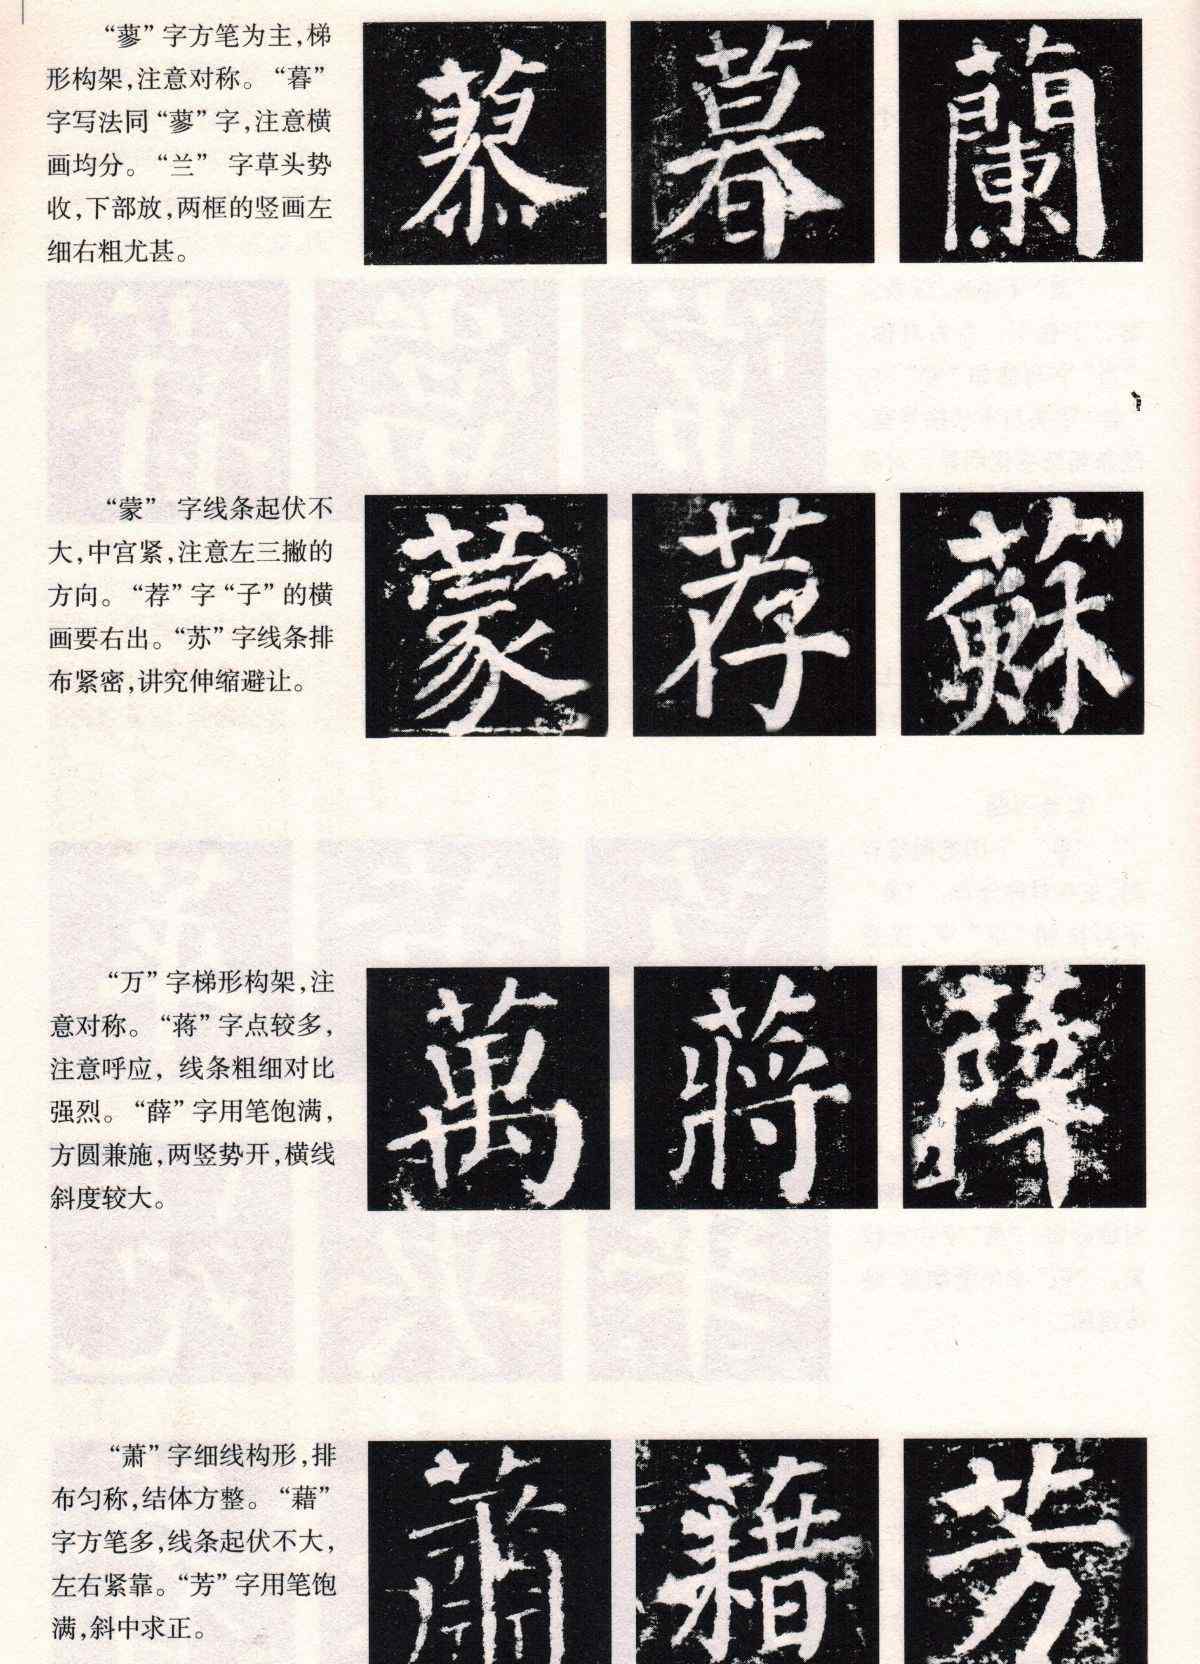 “蓼”字方笔为主，梯
形构架，注意对称。“暮”
字写法同“蓼”字，注意横
画均分。“兰”字草头势
收，下部放，两框的竖画左
细右粗尤甚。
暮 蘭
“蒙”字线条起伏不
大，中宫紧，注意左三撇的
方向。“荐”字“子”的横
画要右出。“苏”字线条排
布紧密，讲究伸缩避让。
蒙 荐 蘇
“万”字梯形构架，注
意对称。“蒋”字点较多，
注意呼应，线条粗细对比
强烈。“薛”字用笔饱满，
方圆兼施，两竖势开，横线
斜度较大。
萬 蔣 薛
“萧”字细线构形，排
布匀称，结体方整。“藉”
字方笔多，线条起伏不大，
左右紧靠。“芳”字用笔饱
满，斜中求正。
蕭 藉 芳